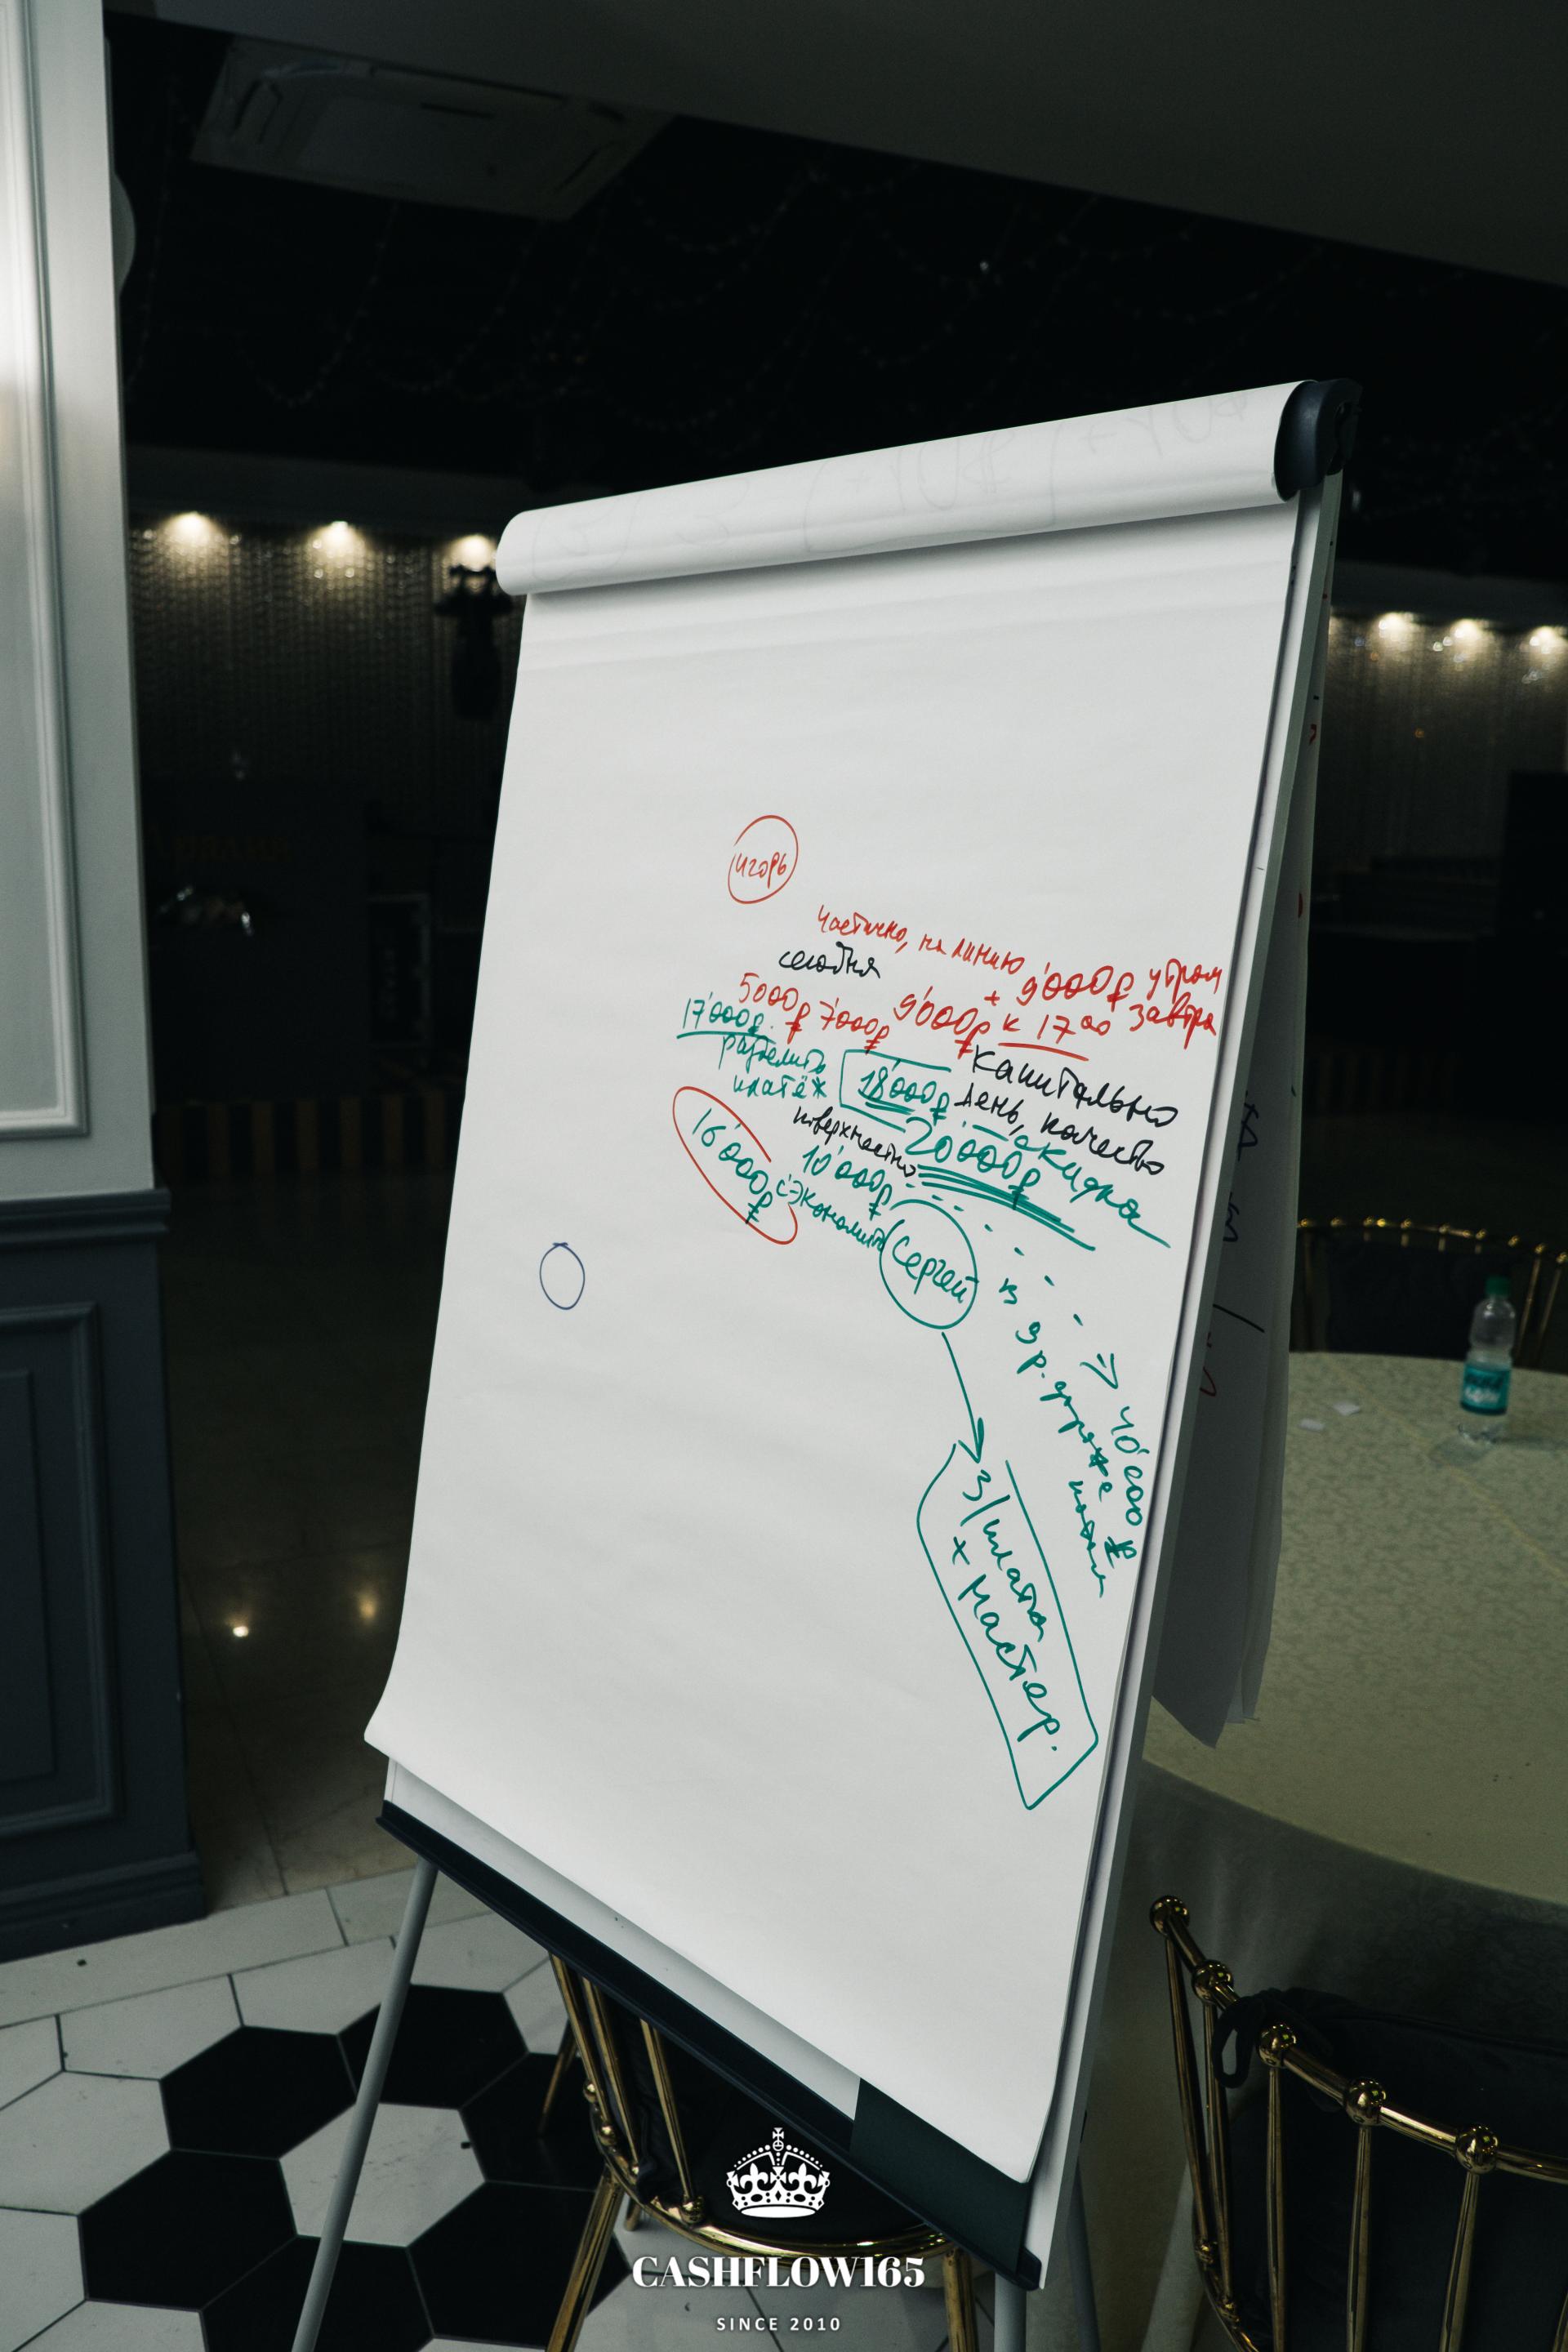 игорь
частично, на линию
сегодня
+ 9'000₽ утром
5000₽ 7000₽ 9'000₽ к 17 00 завтра
17'000₽.
разделить
платёж
18'000₽
капитально
день, качество
поверхностно
20'000₽
скидка
16'000₽
10'000₽
сэкономить
Сергей
40'000₽
др. дороже
3/плата
+ мастер.
CASHFLOW165
SINCE 2010